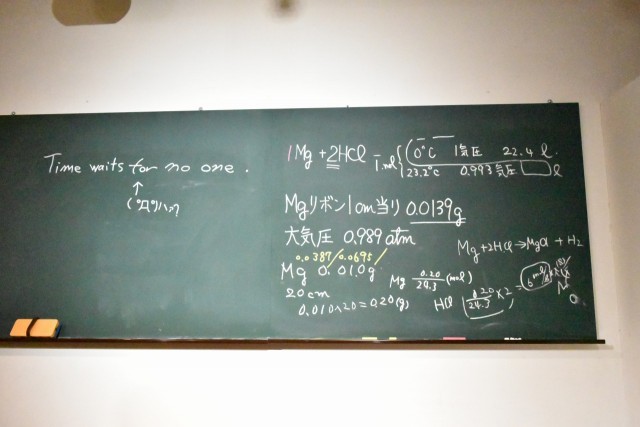 Time waits for no one.
↑
(゜Д゜)ハッ
1Mg + 2HCl
1mol { 0℃ 1気圧 22.4 l
23.2℃ 0.993気圧 □ l
Mgリボン1cm当り 0.0139g
大気圧 0.989 atm
0.0387/0.0695/
Mg 0.010g
20cm
0.010×20=0.20(g)
Mg+2HCl→MgCl + H2
Mg 0.20/24.3 (mol)
HCl 0.20/24.3 ×2